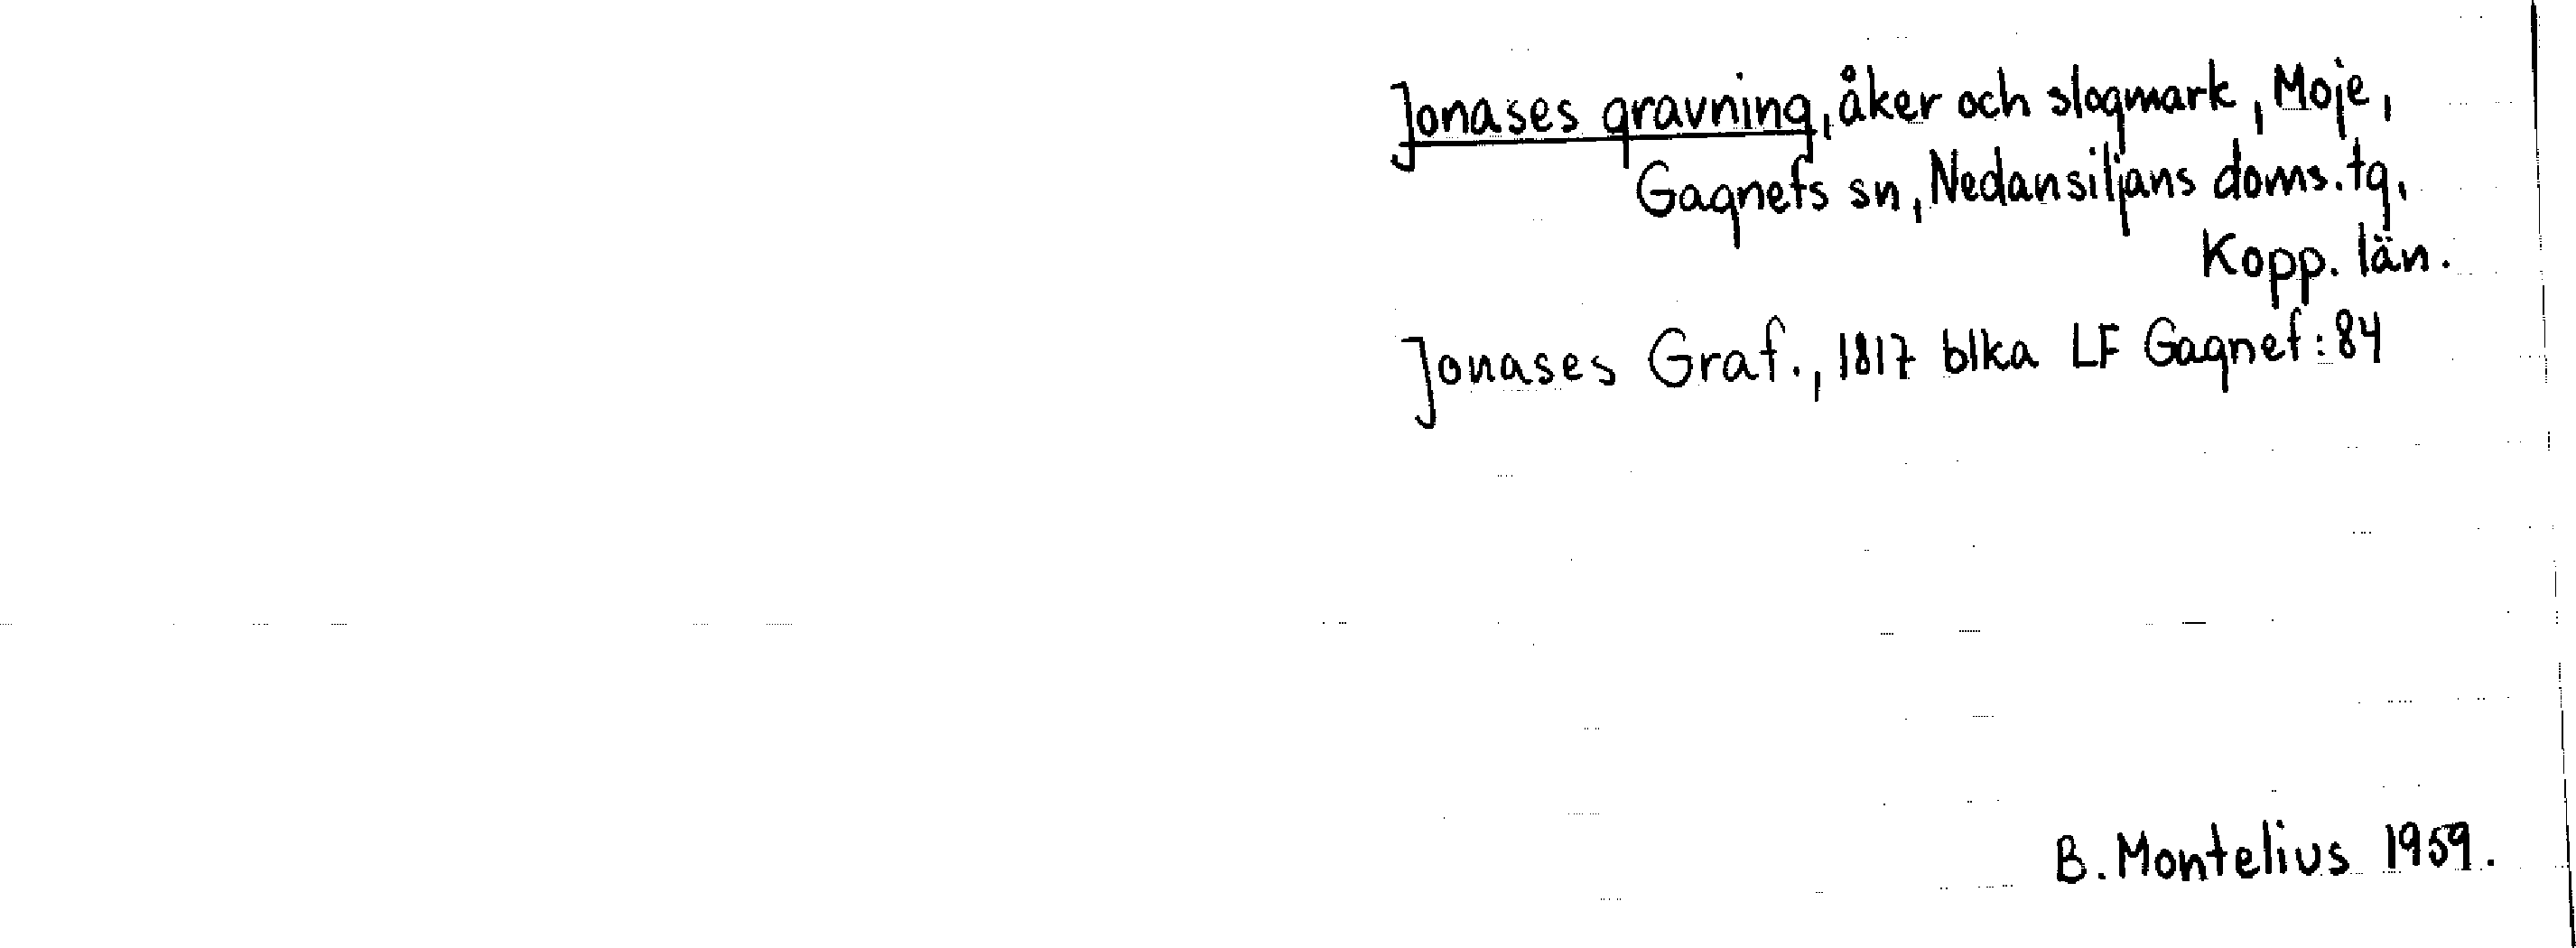 Jonases gravning, åker och slogmark, Moje,
Gagnefs sn, Nedansiljans doms.tg,
Kopp. län.
Jonases Graf., 1817 blka LF Gagnef:84
B. Montelius 1959.